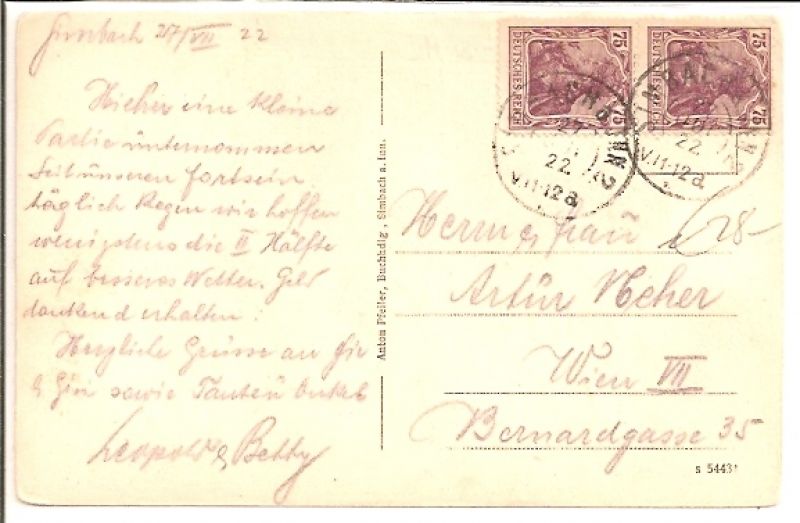 Simbach 27/VII 22
Hieher eine kleine
Partie unternommen
Seit unseren fortsein
täglich Regen wir hoffen
wenigstens die II Hälfte
auf besseres Wetter. Geld
dankend erhalten.
Herzliche Grüsse an Sie
& Gin sowie Tanten Onkel
Leopold & Betty
Anton Pfeiler, Buchhdlg., Simbach a. Inn.
75 75
DEUTSCHES REICH
75 75
DEUTSCHES REICH
22.
V.11-12a.
22.
V.11-12a.
Herrn & Frau
Artúr Neher
Wien VII
Bernardgasse 35
s 5443